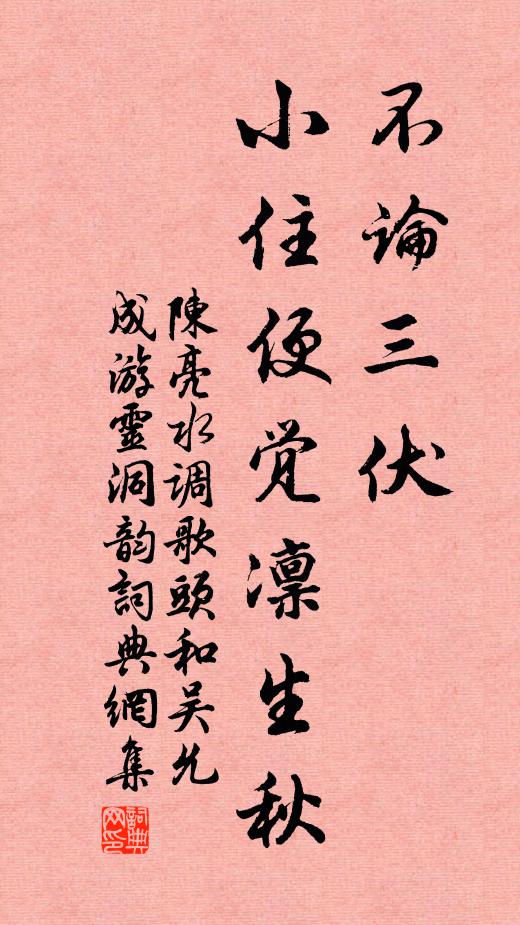 不論三伏
小住便覺凛生秋
陳亮水调歌頭和吴允
成游靈洞韵詞典網集
詞典网印